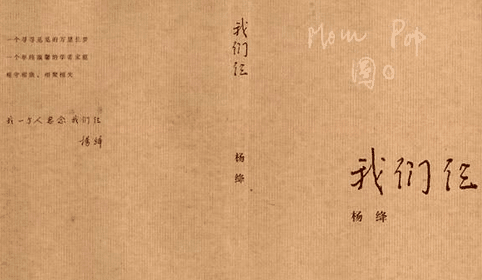 一个寻寻觅觅的万里长梦
一个单纯温馨的学者家庭
相守相助，相聚相失
我一个人思念我们仨
杨绛
我们仨
杨绛
Mom Pop
圆O
我们仨
杨 绛